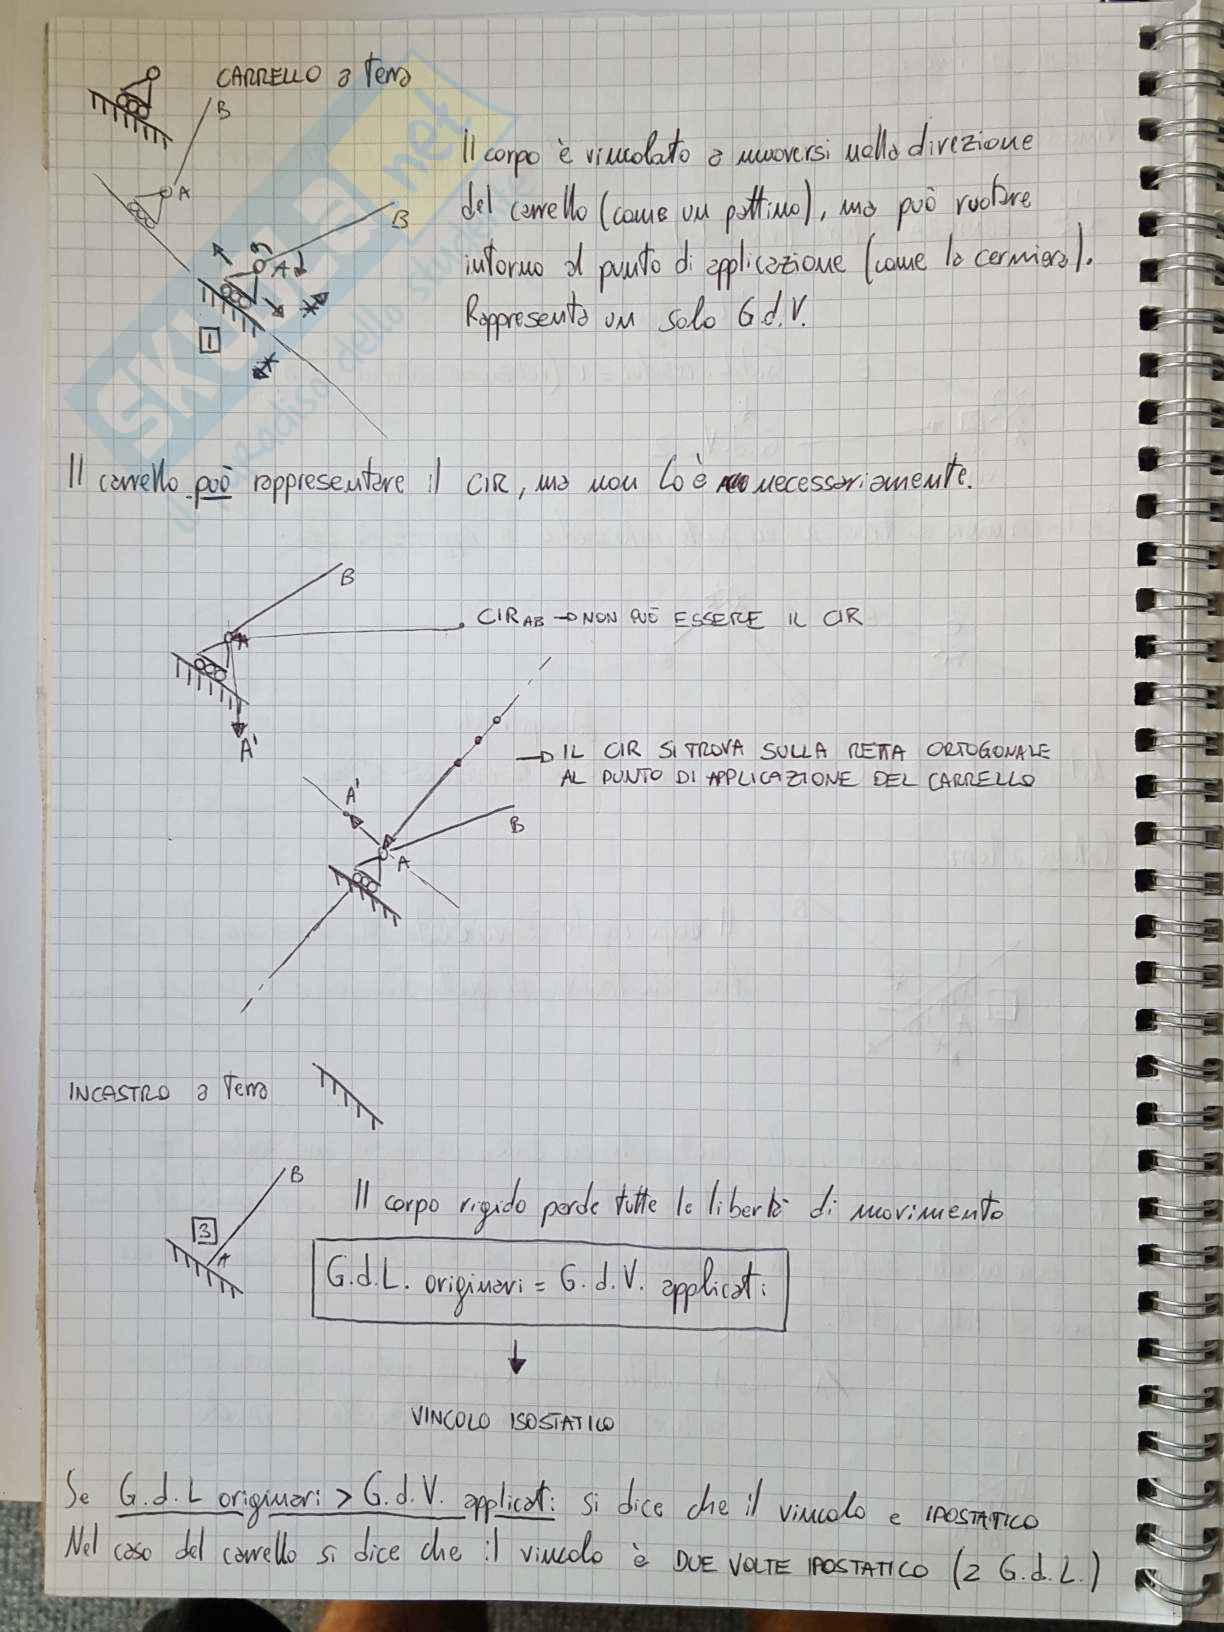 CARRELLO a terra
B
A
Il corpo è vincolato a muoversi nella direzione
del carrello (come un pattino), ma può ruotare
intorno al punto di applicazione (come la cerniera).
Rappresenta un solo G.d.V.
B
A
1
SKUOLA.net
il paradiso dello studente
Il carrello può rappresentare il CIR, ma non lo è necessariamente.
B
A
A'
CIR AB → NON PUÒ ESSERE IL CIR
IL CIR SI TROVA SULLA RETTA ORTOGONALE
AL PUNTO DI APPLICAZIONE DEL CARRELLO
A'
B
A
INCASTRO a terra
B
3
A
Il corpo rigido perde tutte le libertà di movimento
G.d.L. originari = G.d.V. applicati
VINCOLO ISOSTATICO
Se G.d.L originari > G.d.V. applicati si dice che il vincolo e IPOSTATICO
Nel caso del carrello si dice che il vincolo è DUE VOLTE IPOSTATICO (2 G.d.L.)